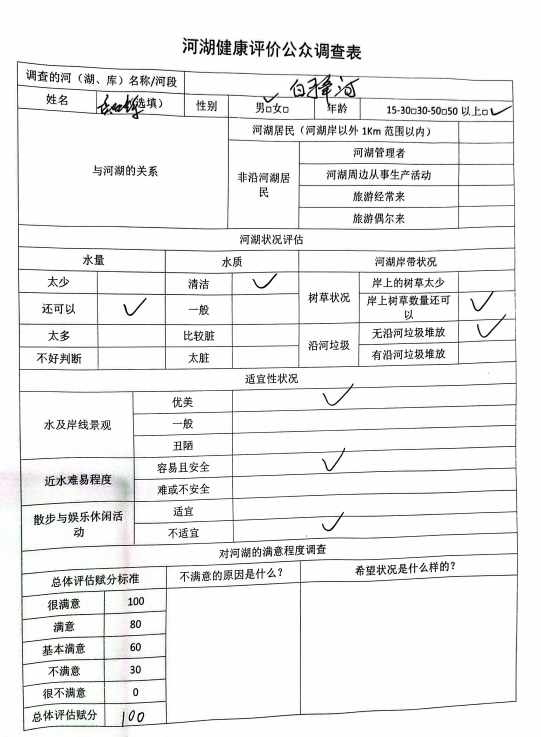 河湖健康评价公众调查表
调查的河（湖、库）名称/河段
姓名 （选填） 性别 男□✓女□ 年龄 15-30□30-50□50 以上□✓
与河湖的关系
河湖居民（河湖岸以外 1Km 范围以内）
非沿河湖居民
河湖管理者
河湖周边从事生产活动
旅游经常来
旅游偶尔来
河湖状况评估
水量 水质 河湖岸带状况
太少 清洁 ✓ 树草状况 岸上的树草太少
还可以 ✓ 一般 岸上树草数量还可以 ✓
太多 比较脏 沿河垃圾 无沿河垃圾堆放 ✓
不好判断 太脏 有沿河垃圾堆放
适宜性状况
水及岸线景观 优美 ✓
一般
丑陋
近水难易程度 容易且安全 ✓
难或不安全
散步与娱乐休闲活动 适宜
不适宜 ✓
对河湖的满意程度调查
总体评估赋分标准 不满意的原因是什么？ 希望状况是什么样的？
很满意 100
满意 80
基本满意 60
不满意 30
很不满意 0
总体评估赋分 100